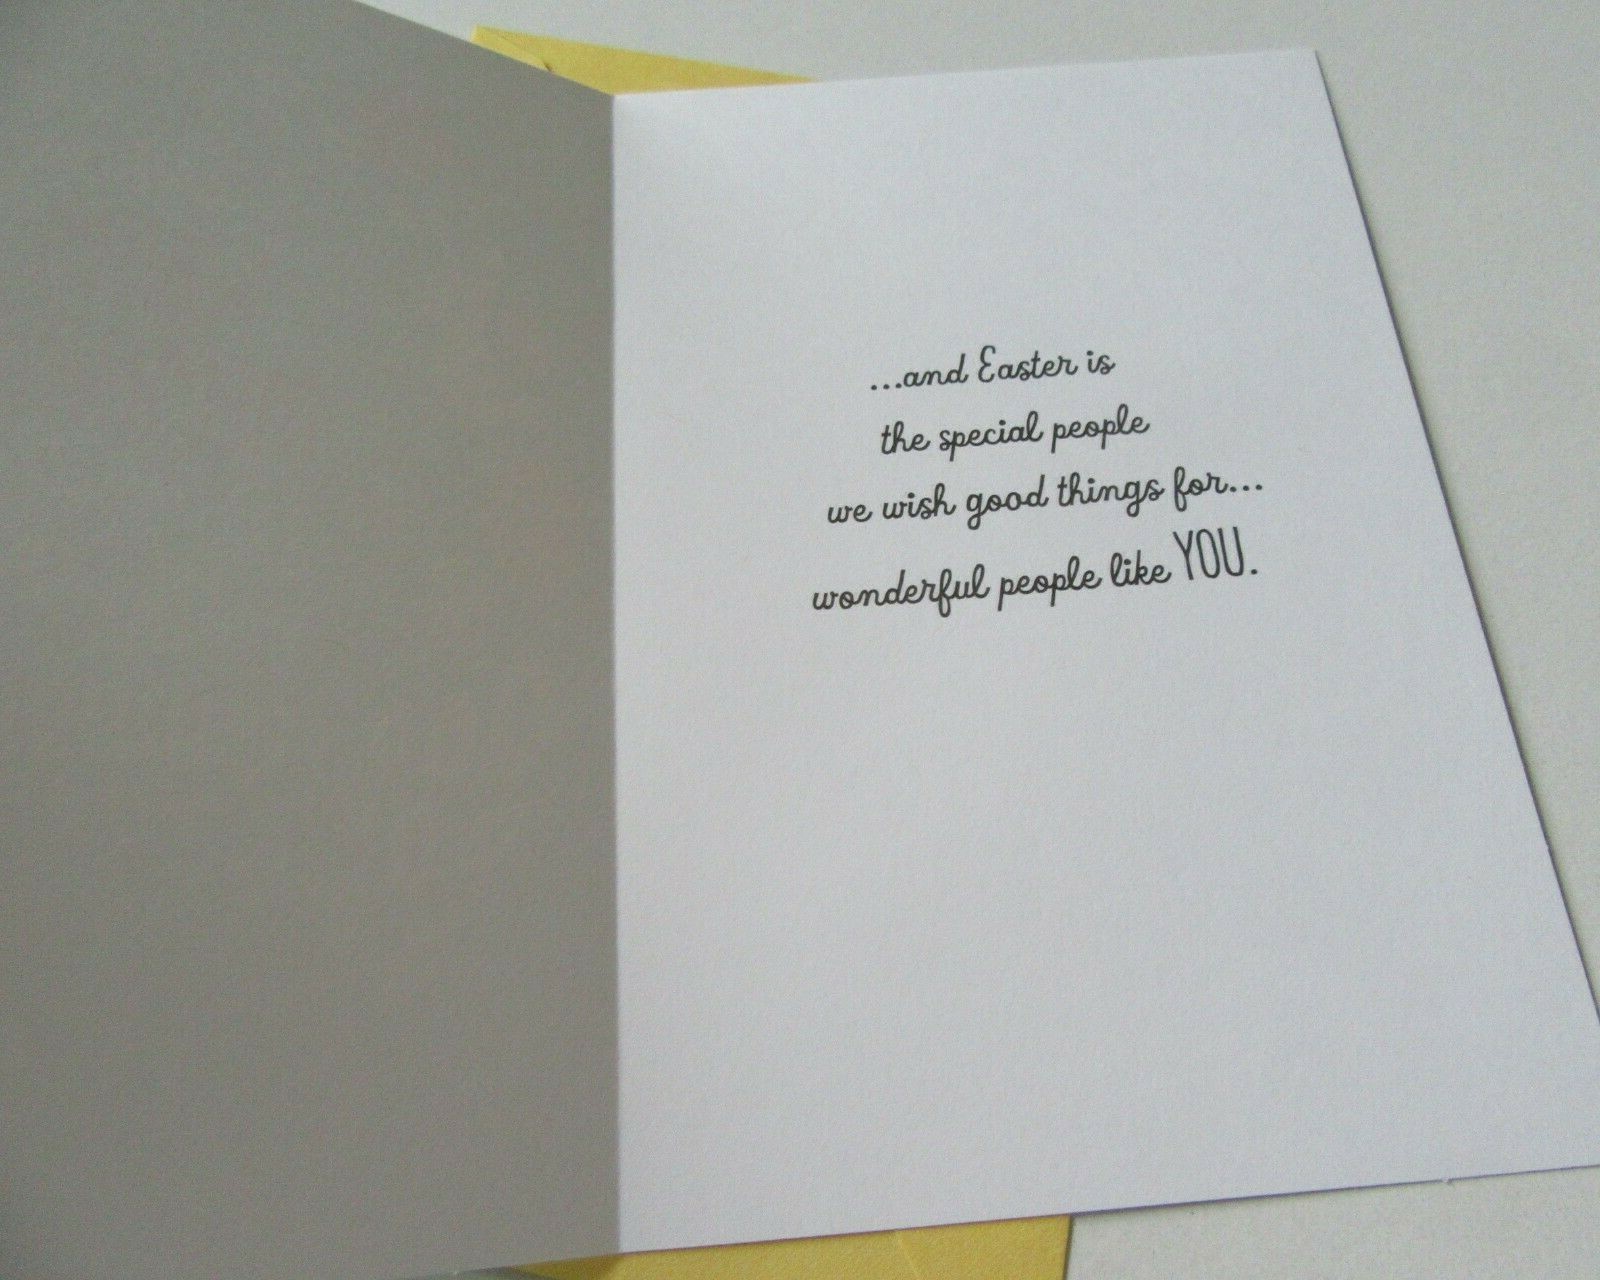 ...and Easter is
the special people
we wish good things for...
wonderful people like YOU.